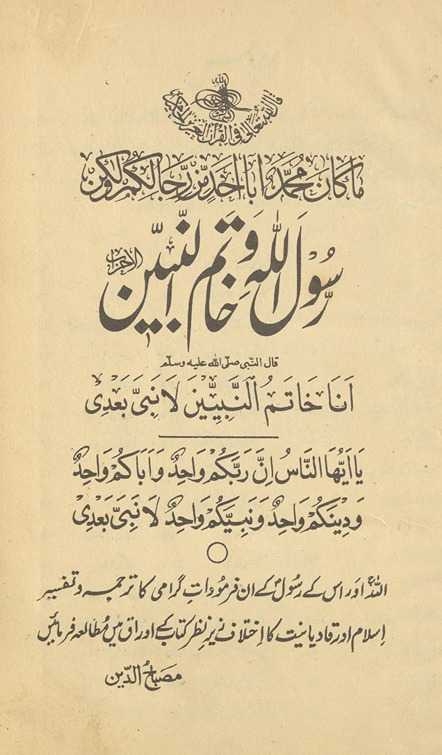 قال الله تعالى فى القرآن العزيز الحكيم
مَا كَانَ مُحَمَّدٌ اَبَا اَحَدٍ مِّنْ رِّجَالِكُمْ وَلٰكِنْ
رَّسُوْلَ اللهِ وَ خَاتَمَ النَّبِيّنَ الاحزاب
قال النبى صلى الله عليه وسلم
اَنَا خَاتَمُ النَّبِيّيْنَ لَا نَبِىَّ بَعْدِىْ
يَا اَيُّهَا النَّاسُ اِنَّ رَبَّكُمْ وَاحِدٌ وَ اَبَاكُمْ وَاحِدٌ
وَ دِيْنَكُمْ وَاحِدٌ وَ نَبِيَّكُمْ وَاحِدٌ لَا نَبِىَّ بَعْدِىْ
اللہ اور اس کے رسولؐ کے ان فرموداتِ گرامی کا ترجمہ و تفسیر
اسلام اور قادیانیت کا اختلاف زیرِ نظر کتاب کے اوراق میں مُطالعہ فرمائیں
مصباحُ الدّین